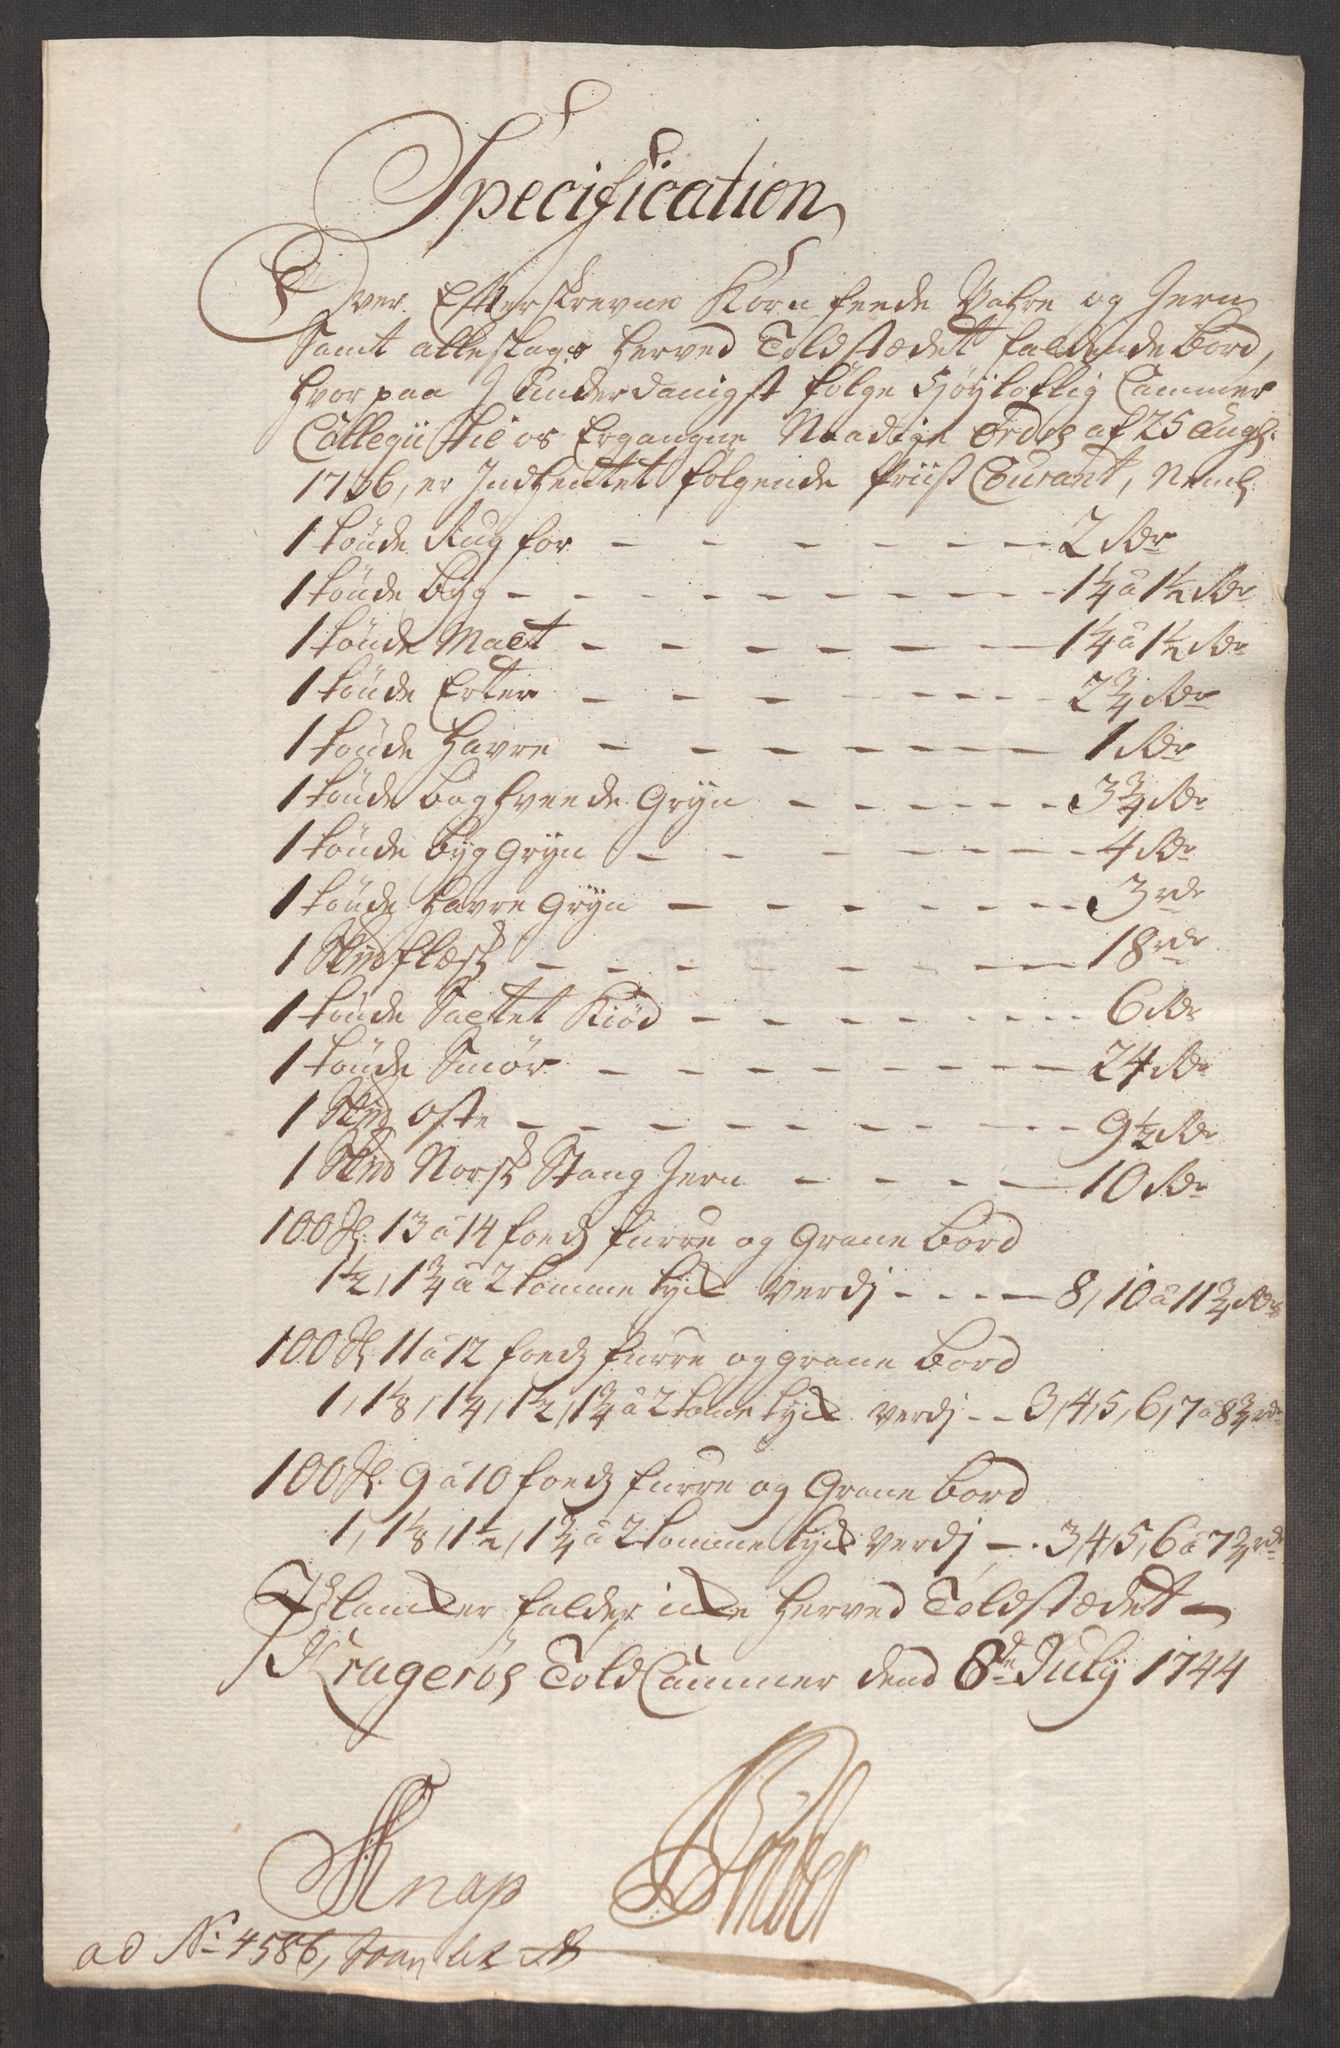 Specification
Over Efterskrevne Korn feede Vahre og Jern
Samt alleslags herved Toldstædet faldende Bord,
hvorpaa J Underdanigst følge Høyloflig Cammer
Collegii til os Ergangne Naadige Ordre af 25 Aug:
1736, er Indhentet følgende Priis Courant, Neml:
1 tønde Rug for - - - - - - 2 Rdr
1 tønde Byg - - - - - - - 1¼ à 1½ Rdr
1 tønde Malt - - - - - - 1¼ à 1½ Rdr
1 tønde Erter - - - - - - 2¾ Rdr
1 tønde Havre - - - - - - 1 Rdr
1 tønde Boghvede Gryn - - - - - 3¾ Rdr
1 tønde Byg Gryn - - - - - - 4 Rdr
1 tønde Havre Gryn - - - - - - 3 rdr
1 Skpd flæsk - - - - - - - 18 rdr
1 tønde Saltet Kiød - - - - - - 6 Rdr
1 tønde Smør - - - - - - - 24 Rdr
1 Skpd Oste - - - - - - - 9½ Rdr
1 Skpd Norsk Stang Jern - - - - 10 Rdr
100 St: 13 à 14 foeds furre og Grane Bord
1½, 1¾ à 2 tomme tyk verdj - - - 8, 10 à 11¾ Rdr
100 St: 11 à 12 foeds furre og grane Bord
1, 1⅛, 1¼, 1½, 1¾ à 2 tome tyk verdj - - 3, 4, 5, 6, 7 à 8¾ rdr
100 St: 9 à 10 foeds furre og Grane Bord
1, 1⅛, 1½, 1¾ à 2 tomme tyk verdj - - 3, 4, 5, 6 à 7¾ rdr
Planker falder ikke herved Toldstædet -
Kragerøs Told Cammer dend 8de July 1744
Knap
ad No 4586,